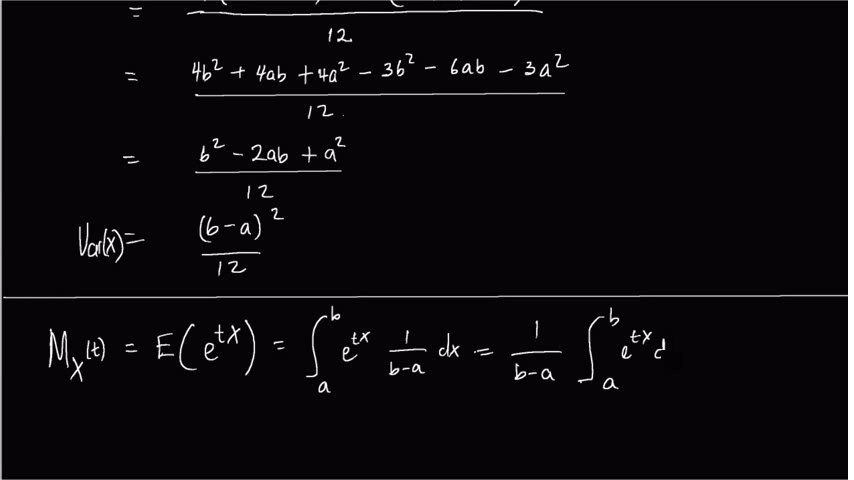 = 12
= 4b² + 4ab + 4a² - 3b² - 6ab - 3a² / 12.
= b² - 2ab + a² / 12
Var(x) = (b-a)² / 12
M_X(t) = E(e^{tX}) = ∫_a^b e^{tx} 1/(b-a) dx = 1/(b-a) ∫_a^b e^{tx} d